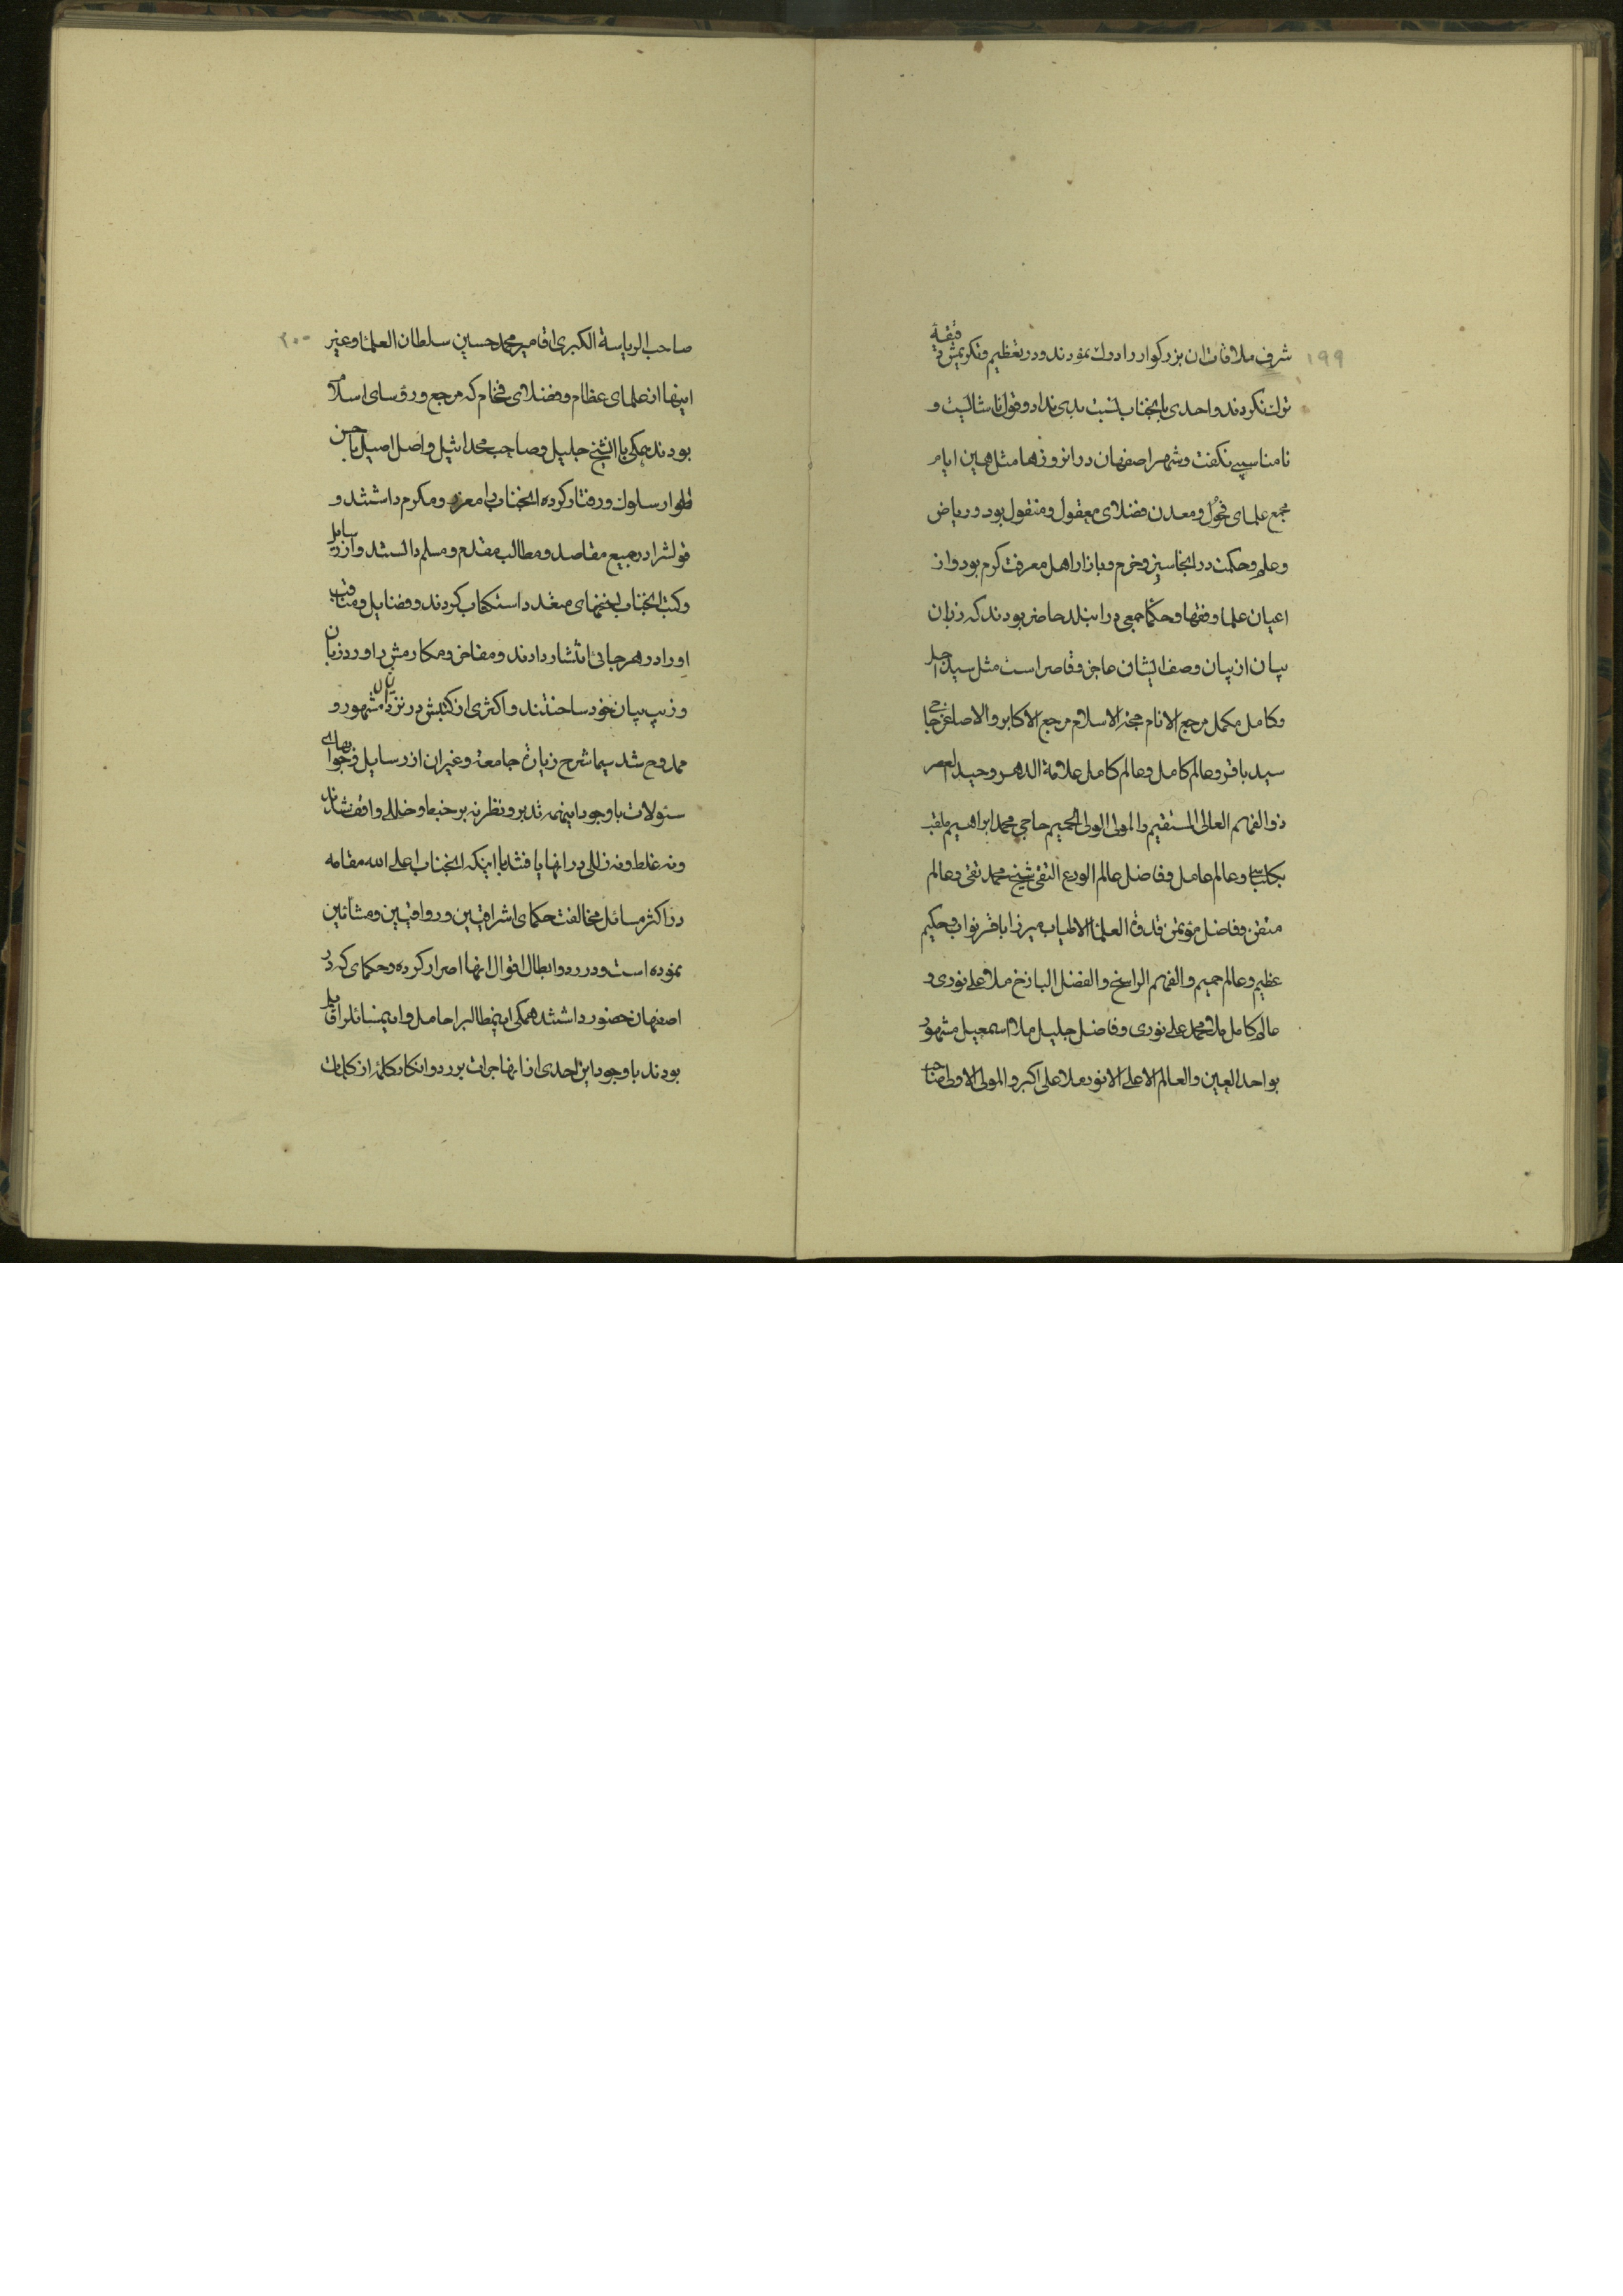 ۱۹۹
شرف ملاقات ان بزرکوار را درک نمودند و در تعظیم و تکریمش دقیقهٔ
ترک نکردند و احدی بانجناب نسبت بدی نداد و قول ناشایست و
نامناسبی نکفت و شهر اصفهان در انروزها مثل همین ایام
مجمع علمای فحول و معدن فضلای معقول و منقول بود و ریاض
و علم و حکمت در انجا سبز و خرم و بازار اهل معرفت کرم بود و از
اعیان علما و فقها و حکما جمعی در ان بلد حاضر بودند که زبان
بیان از بیان وصف ایشان عاجز و قاصر است مثل سید اجل
و کامل مکمل مرجع الانام حجة الاسلام مرجع الاکابر و الاصاغر حاجی
سید باقر و عالم کامل و عالم کامل علامة الدهر وحید العصر
ذو الفهم العالی المستقیم و المولی الولی الحمیم حاجی محمد ابراهیم ملقب
بکلباسی و عالم عامل و فاضل عالم الورع التقی شیخ محمد تقی و عالم
متقن و فاضل مؤتمن قدوة العلماء الاطیاب میرزا باقر نواب و حکیم
عظیم و عالم حمیم و الفهم الراسخ و الفضل الباذخ ملا علی نوری و
عالم کامل ملا محمد علی نوری و فاضل جلیل ملا اسمعیل مشهور
بواحد العین و العالم الاعلی الانور ملا علی اکبر و المولی الاولی صاحب
۲۰۰
صاحب الریاسة الکبری اقا میر محمد حسین سلطان العلما و غیر
اینها از علمای عظام و فضلای فخام که مرجع و رؤسای اسلام
بودند همکی با ان شیخ جلیل و صاحب مجد اثیل و اصل اصیل باحسن
اطوار سلوک و رفتار کرده انجناب را معزز و مکرم داشتند و
قولشرا در جمیع مقاصد و مطالب مقدم و مسلم دانستند و از رسایل
و کتب انجناب نسخهای متعدد استکتاب کردند و فضایل و مناقب
او را در هر جائی انتشار دادند و مفاخر و مکارمش را ورد زبان
و زیب بیان خود ساختند و اکثری از کتبش در نزد ایشان مشهور و
ممدوح شد سیما شرح زیارة جامعه و غیر ان از رسایل و جوابهای
سئولات با وجود اینهمه تدبر و نظر نه بر خبط و خللی واقف شدند
و نه غلط و نه زللی در انها یافتند با اینکه انجناب اعلی الله مقامه
در اکثر مسائل مخالفت حکمای اشراقیین و رواقیین و مشائین
نموده است و در رد و ابطال اقوال انها اصرار کرده و حکمای که در
اصفهان حضور داشتند همکی اینمطالبرا حامل و اینمسائلرا قایل
بودند با وجود این احدی از انها جرات بر رد و انکار کلمهٔ از کلمات